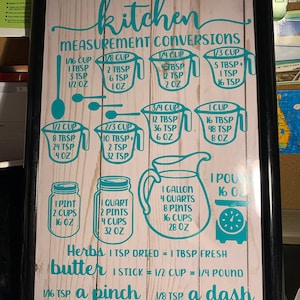 kitchen
MEASUREMENT CONVERSIONS
1/16 CUP
1 TBSP
3 TSP
1/2 OZ
1/8 CUP
2 TBSP
6 TSP
1 OZ
1/4 CUP
TBSP
12 TSP
2 OZ
1/3 CUP
5 TBSP
1 TSP
16 TSP
1/2 CUP
8 TBSP
24 TSP
4 OZ
2/3 CUP
10 TBSP
2 TSP
32 TSP
3/4 CUP
12 TBSP
36 TSP
6 OZ
1 CUP
16 TBSP
48 TSP
8 OZ
1 PINT
2 CUPS
16 OZ
1 QUART
2 PINTS
4 CUPS
32 OZ
1 GALLON
4 QUARTS
8 PINTS
16 CUPS
28 OZ
1 POUND
16 OZ
Herbs 1 TSP DRIED = 1 TBSP FRESH
butter 1 STICK = 1/2 CUP = 1/4 POUND
1/16 TSP a pinch 1/8 TSP a dash